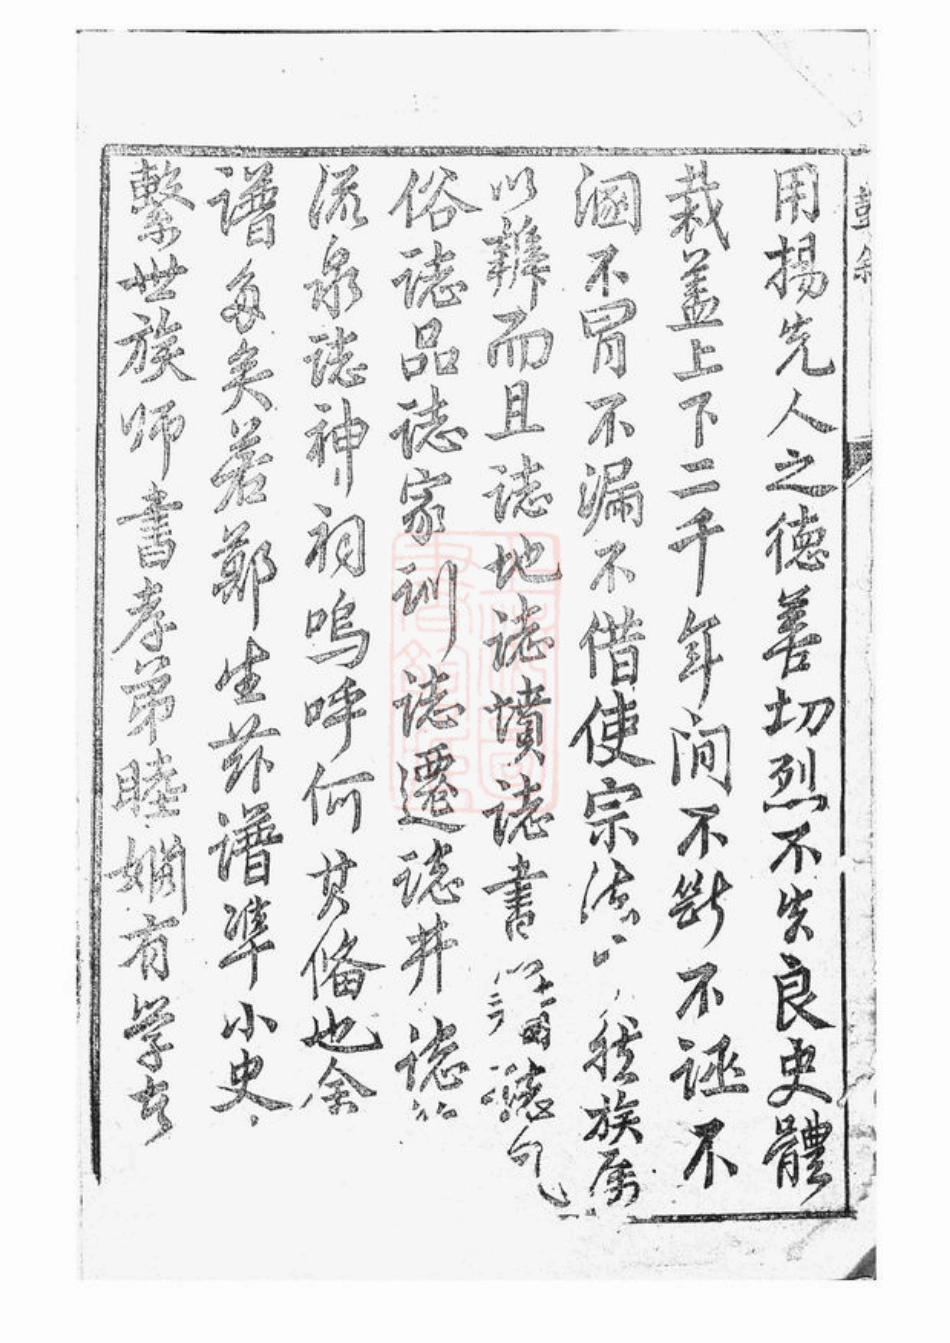 用揚先人之德善切烈不失良史體
裁蓋上下二千年間不斷不誣不
溷不冐不漏不借使宗法然族属
以辨而且誌地誌墳誌書誌氣
俗誌品誌家訓誌遷誌井誌
流泉誌神祠嗚呼何其偹也余
譜多矣若鄭生茲譜準小史
繫世族師書孝弟睦婣有學者